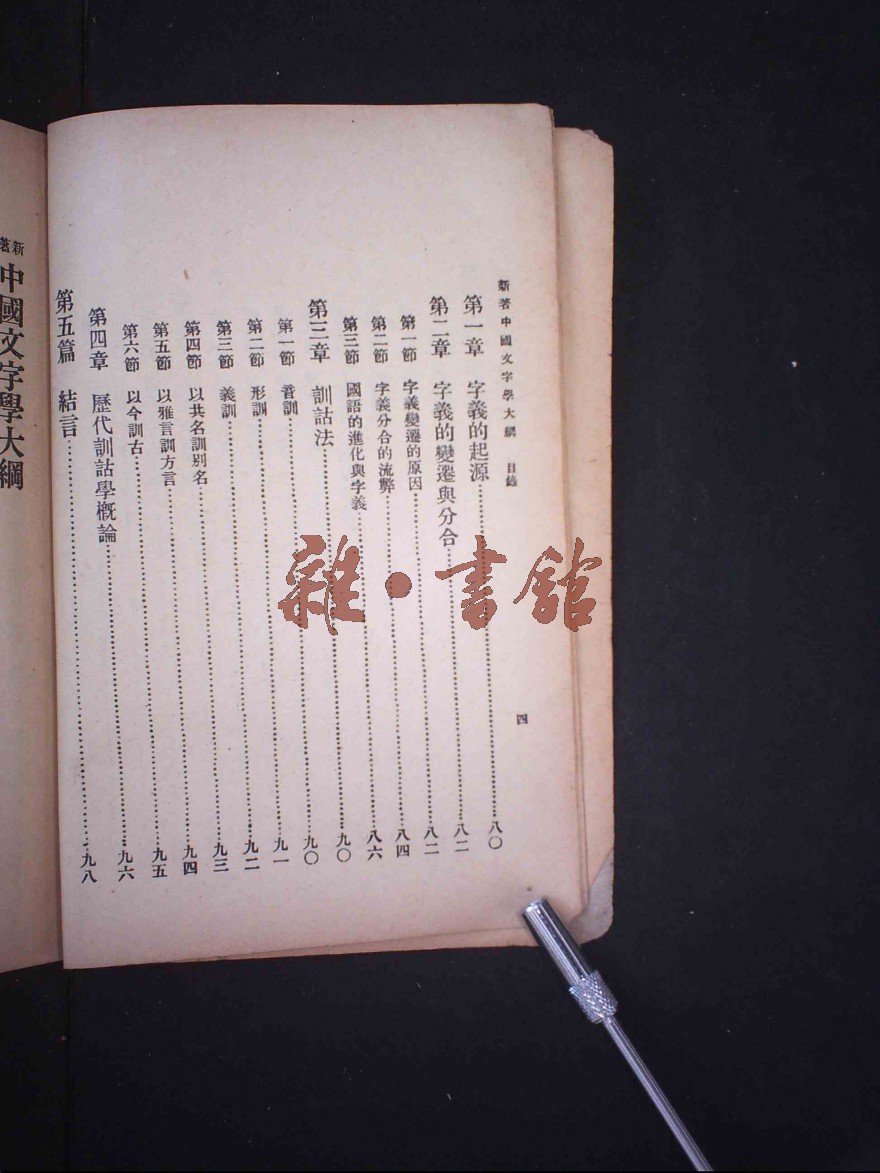 新著中國文字學大綱 目錄
四
第一章 字義的起源……八〇
第二章 字義的變遷與分合……八二
第一節 字義變遷的原因……八二
第二節 字義分合的流弊……八四
第三節 國語的進化與字義……八六
第三章 訓詁法……九〇
第一節 音訓……九〇
第二節 形訓……九一
第三節 義訓……九二
第四節 以共名訓别名……九三
第五節 以雅言訓方言……九四
第六節 以今訓古……九五
第四章 歷代訓詁學概論……九六
第五篇 結言……九八
新著
中國文字學大綱
雜·書館